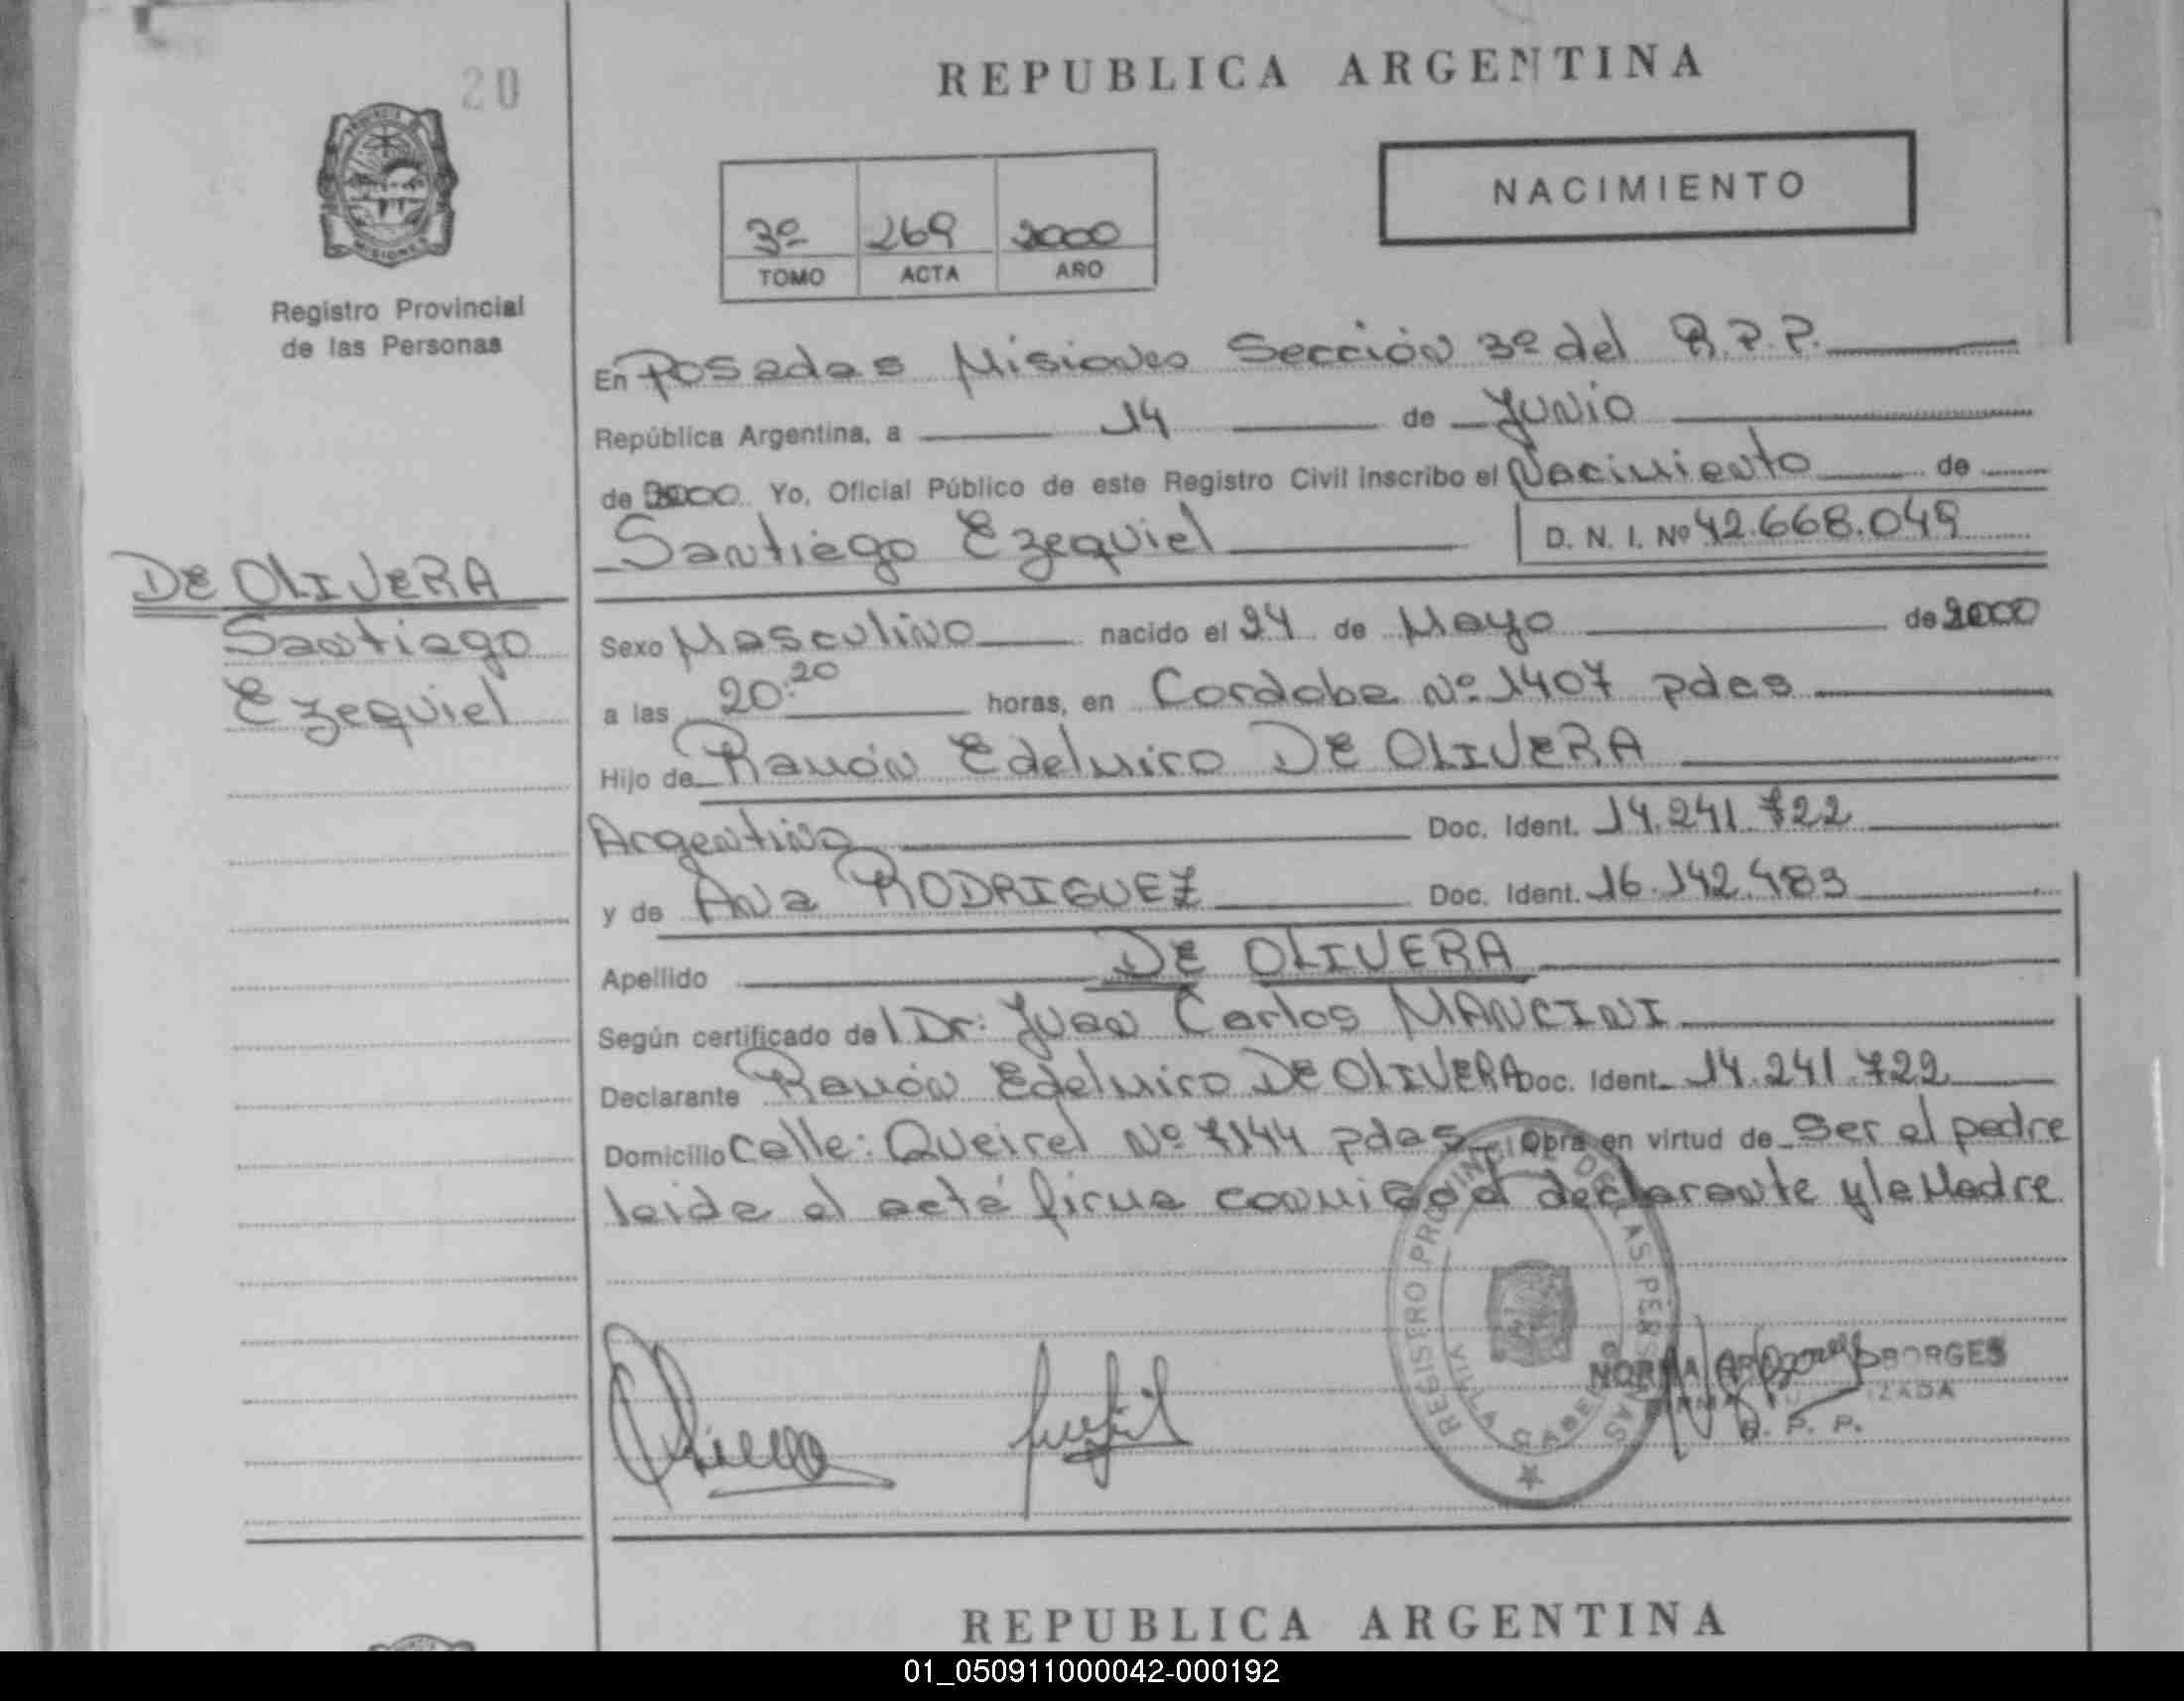 20
REPUBLICA ARGENTINA
NACIMIENTO
3º 269 2000
TOMO ACTA AÑO
Registro Provincial
de las Personas
En Posadas Misiones Sección 3º del R.P.P.
República Argentina, a 14 de Junio
de 2000 Yo, Oficial Público de este Registro Civil inscribo el Nacimiento de
Santiago Ezequiel D. N. I. Nº 42.668.049
DE OLIVERA
Santiago
Ezequiel
Sexo Masculino nacido el 24 de Mayo de 2000
a las 20:20 horas, en Cordoba Nº 1407 pdas
Hijo de Ramón Edelmiro DE OLIVERA
Argentino Doc. Ident. 14.241.722
y de Ana RODRIGUEZ Doc. Ident. 16.142.483
Apellido DE OLIVERA
Según certificado del Dr: Juan Carlos MANCINI
Declarante Ramón Edelmiro DE OLIVERA Doc. Ident. 14.241.722
Domicilio Calle: Queirel Nº 7144 pdas Obra en virtud de Ser el padre
leida el acta firma conmigo el declarante y la Madre
REGISTRO PROVINCIAL DE LAS PERSONAS
VILLA CABELLO
NORMA BORGES
R. P. P.
REPUBLICA ARGENTINA
01_050911000042-000192